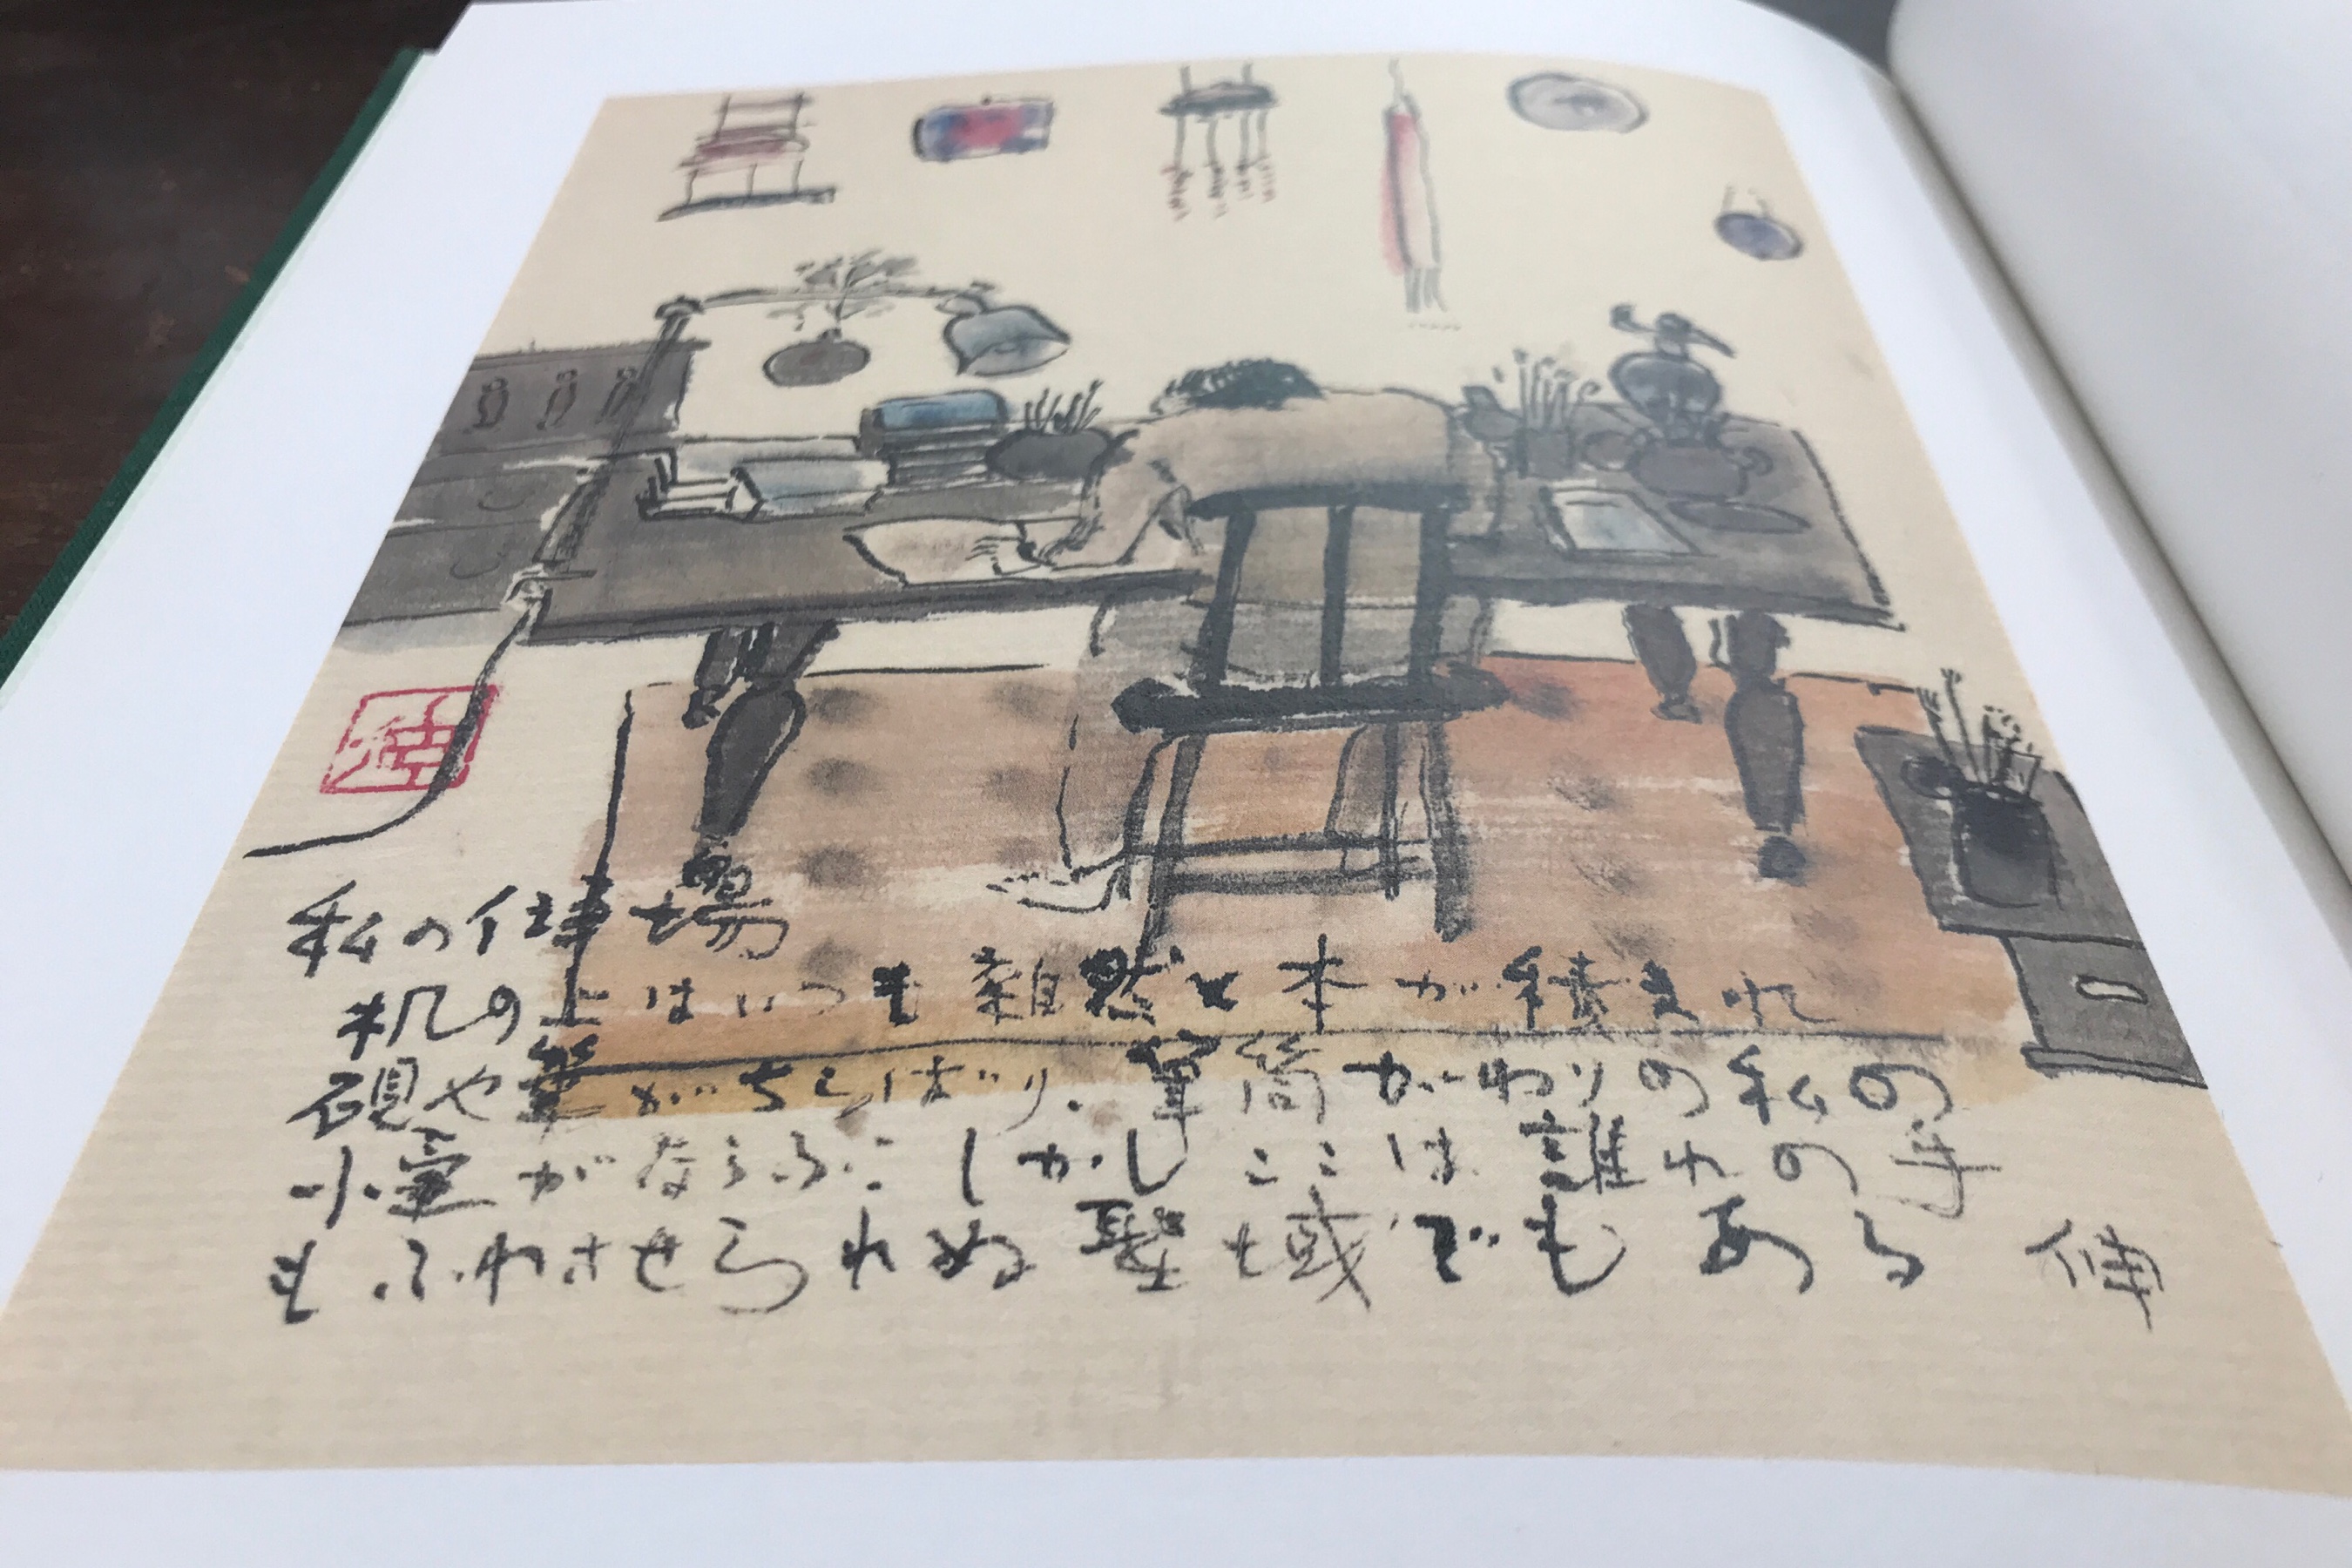 私の仕事場
机の上はいつも雑然と本が積まれ
硯や筆がちらばり．筆筒がわりの私の
小壷がならぶ：しかしここは誰れの手
もふれさせられぬ聖域でもある 伸